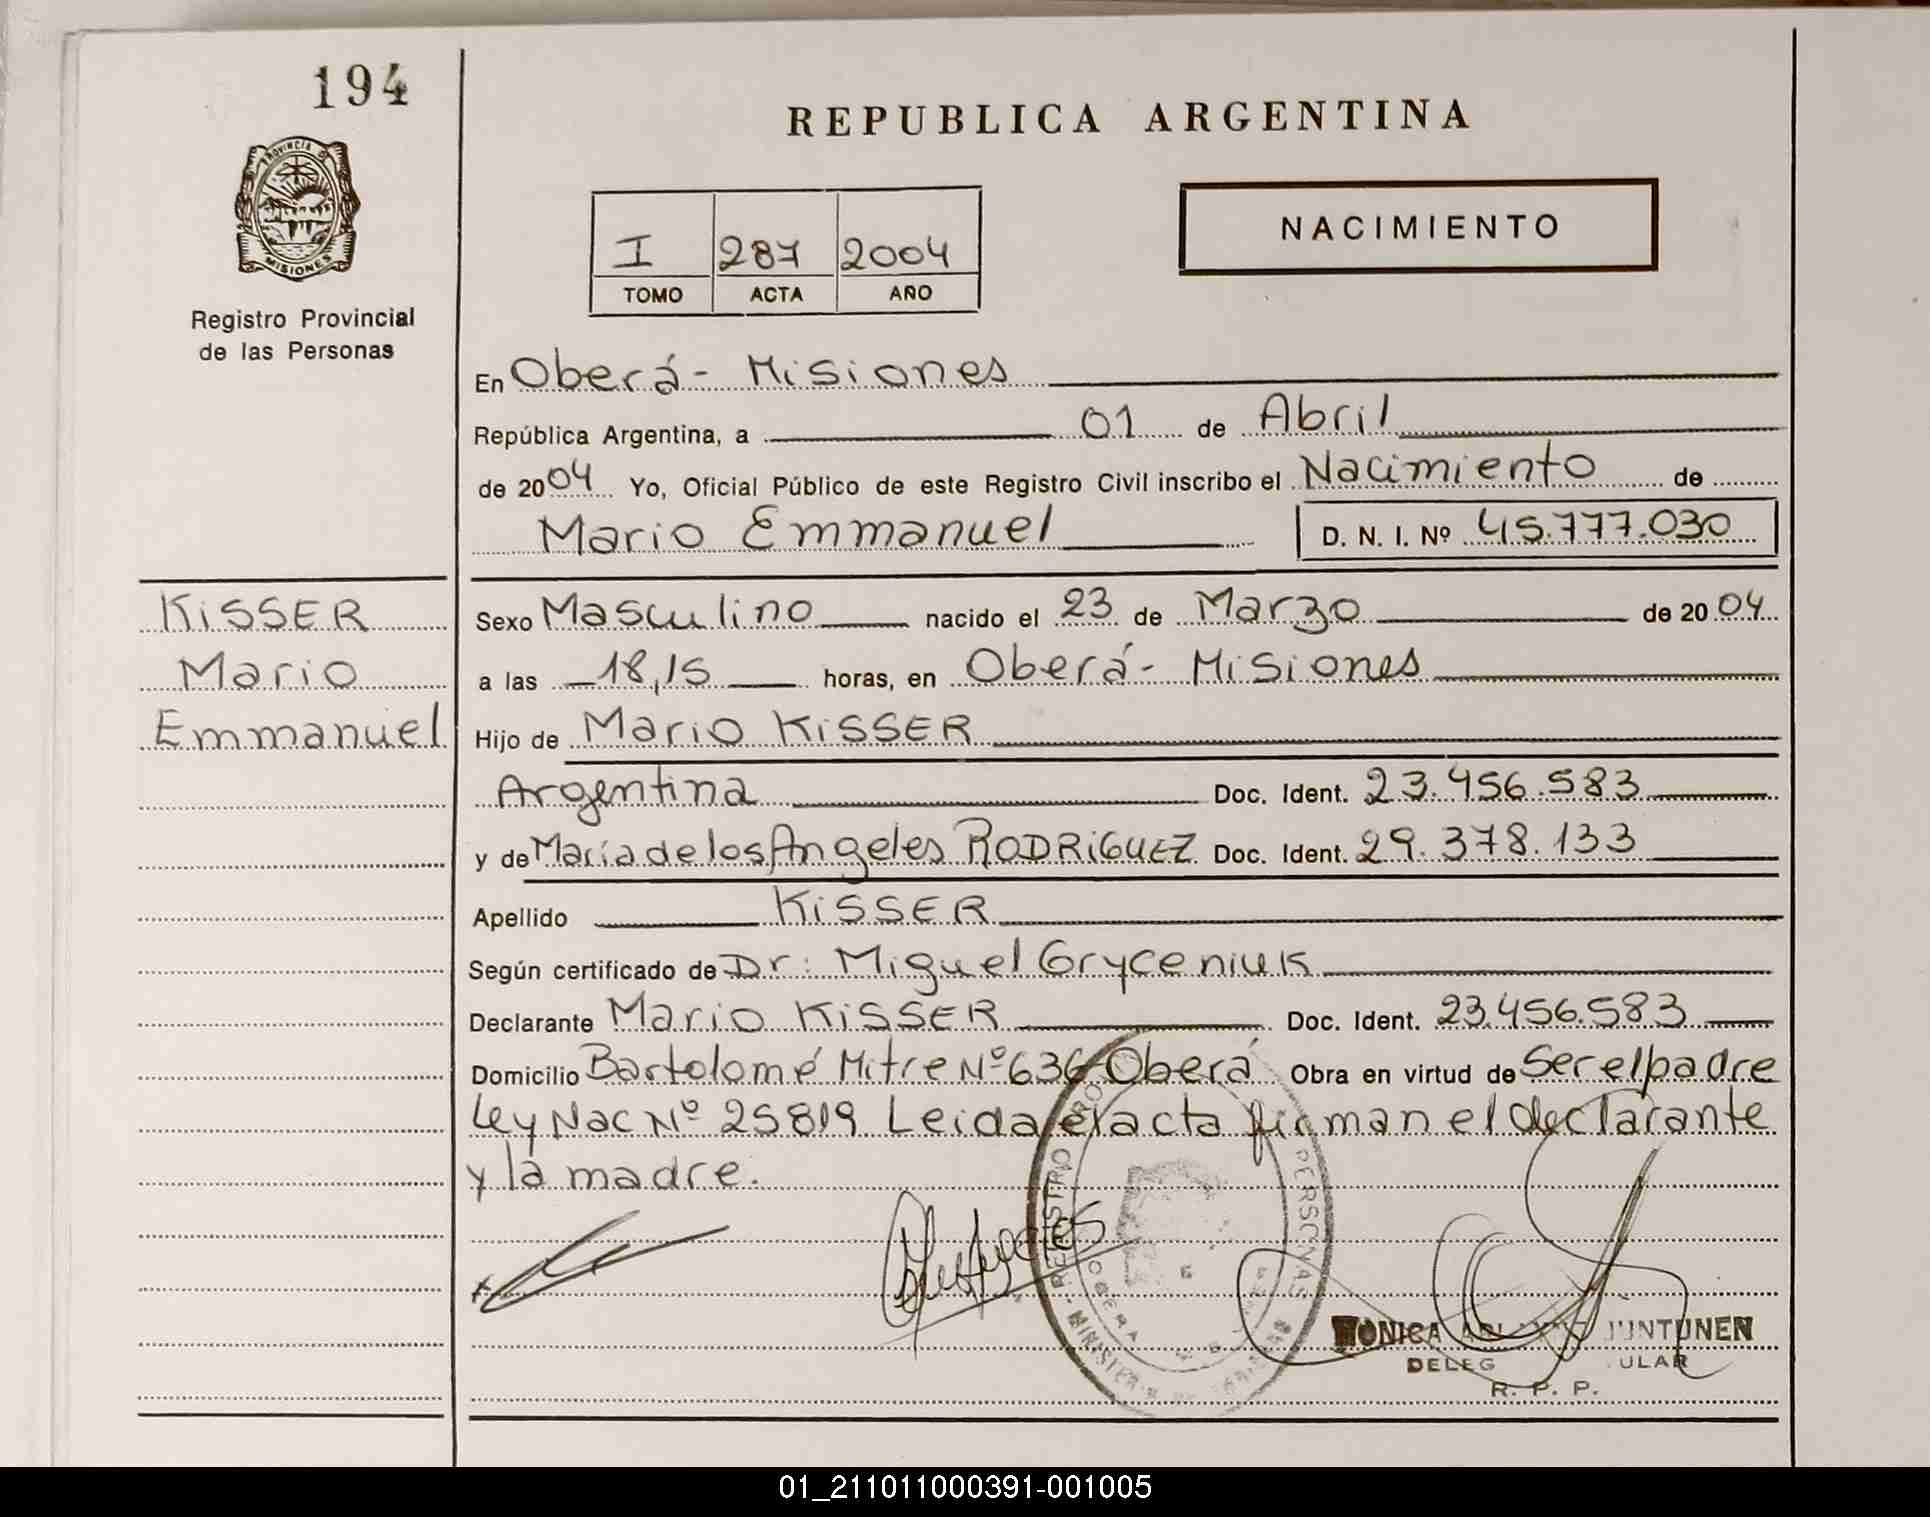 194
REPUBLICA ARGENTINA
PROVINCIA D
MISIONES
Registro Provincial
de las Personas
NACIMIENTO
I 287 2004
TOMO ACTA AÑO
En Oberá - Misiones
República Argentina, a 01 de Abril
de 2004 Yo, Oficial Público de este Registro Civil inscribo el Nacimiento de
Mario Emmanuel D. N. I. Nº 45.777.030
KiSSER
Mario
Emmanuel
Sexo Masculino nacido el 23 de Marzo de 2004
a las 18,15 horas, en Oberá - Misiones
Hijo de Mario KiSSER
Argentina Doc. Ident. 23.456.583
y de María de los Angeles RODRiGUEZ Doc. Ident. 29.378.133
Apellido KiSSER
Según certificado de Dr: Miguel Gryceniuk
Declarante Mario KiSSER Doc. Ident. 23.456.583
Domicilio Bartolomé Mitre Nº 636 - Oberá Obra en virtud de Ser el padre
Ley Nac Nº 25819 Leida el acta firman el declarante
y la madre.
REGISTRO PERSONAS
OBERA
MONICA JUNTUNEN
R. P. P.
01_211011000391-001005